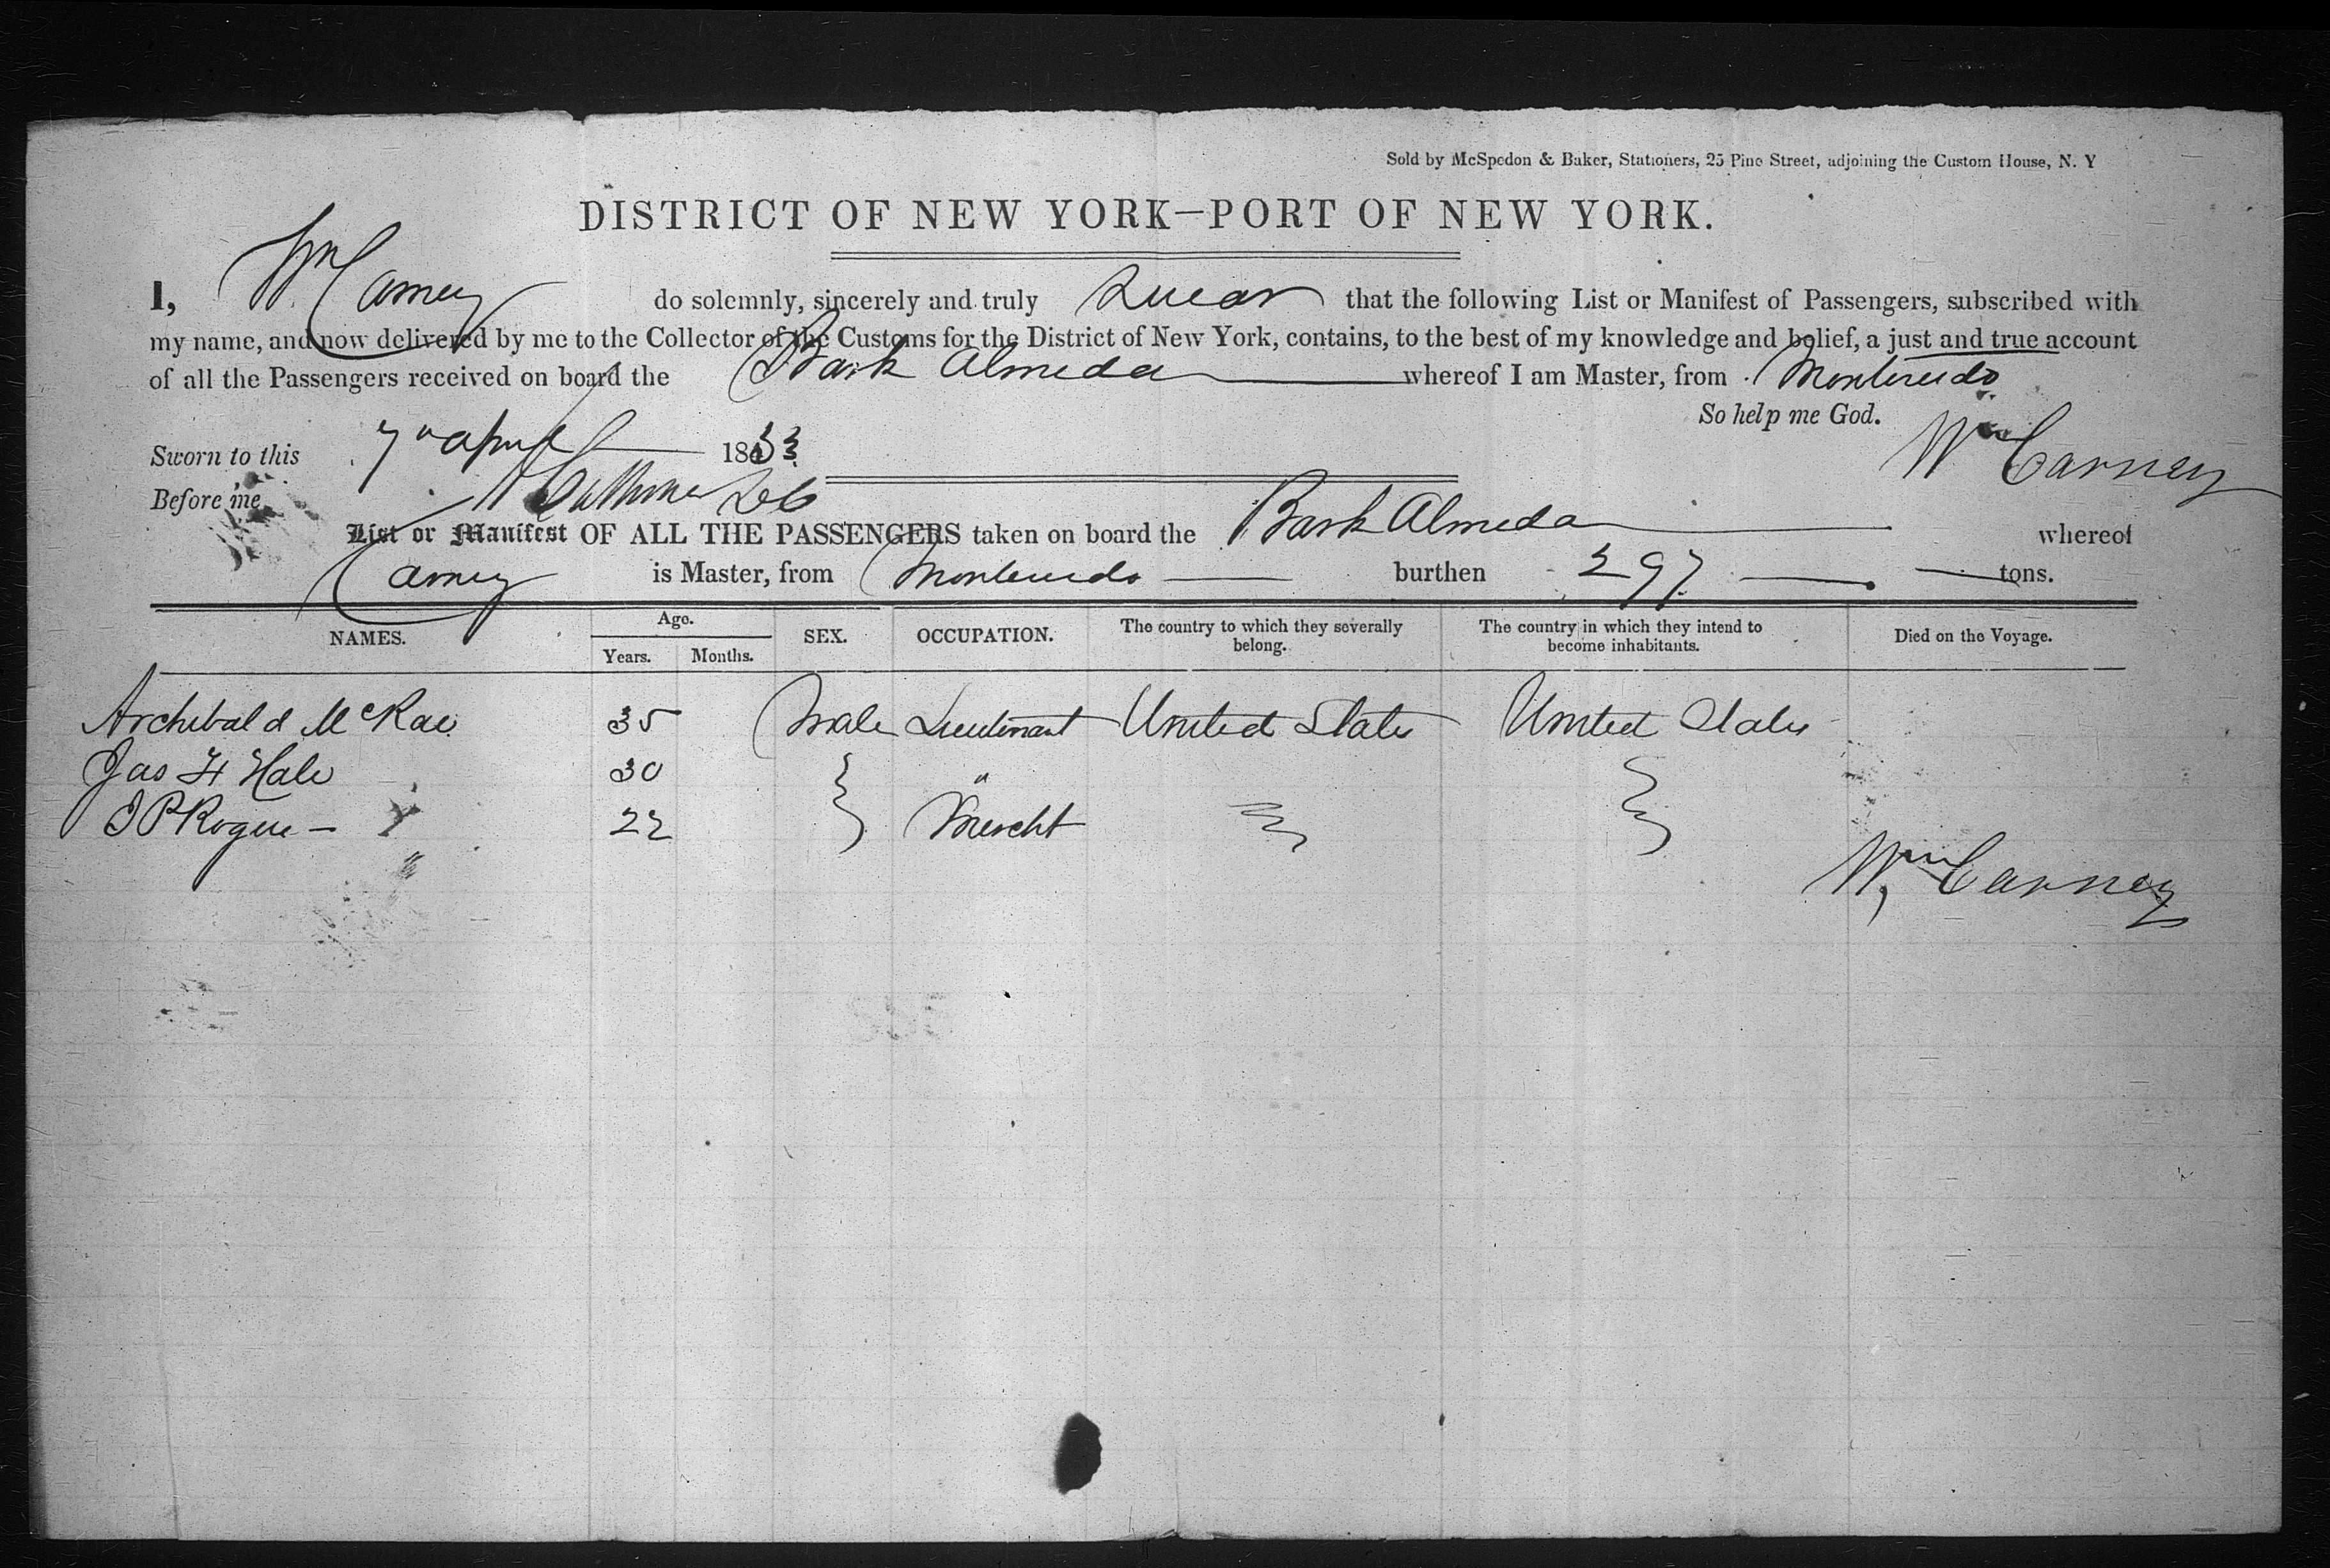 Sold by McSpedon & Baker, Stationers, 25 Pine Street, adjoining the Custom House, N. Y
DISTRICT OF NEW YORK—PORT OF NEW YORK.
I, Wm Carney do solemnly, sincerely and truly Swear that the following List or Manifest of Passengers, subscribed with
my name, and now delivered by me to the Collector of the Customs for the District of New York, contains, to the best of my knowledge and belief, a just and true account
of all the Passengers received on board the Bark Almeda whereof I am Master, from Montevido
So help me God.
Sworn to this 7" April 1853 Wm Carney
Before me
List or Manifest OF ALL THE PASSENGERS taken on board the Bark Almeda whereof
Carney is Master, from Montevido burthen 297 tons.
NAMES. Age. Years. Months. SEX. OCCUPATION. The country to which they severally belong. The country in which they intend to become inhabitants. Died on the Voyage.
Archibald McRae 35 Male Lieutenant United States United States
Jas H Hale 30 "
J P Rogue — 22 Mercht
Wm Carney